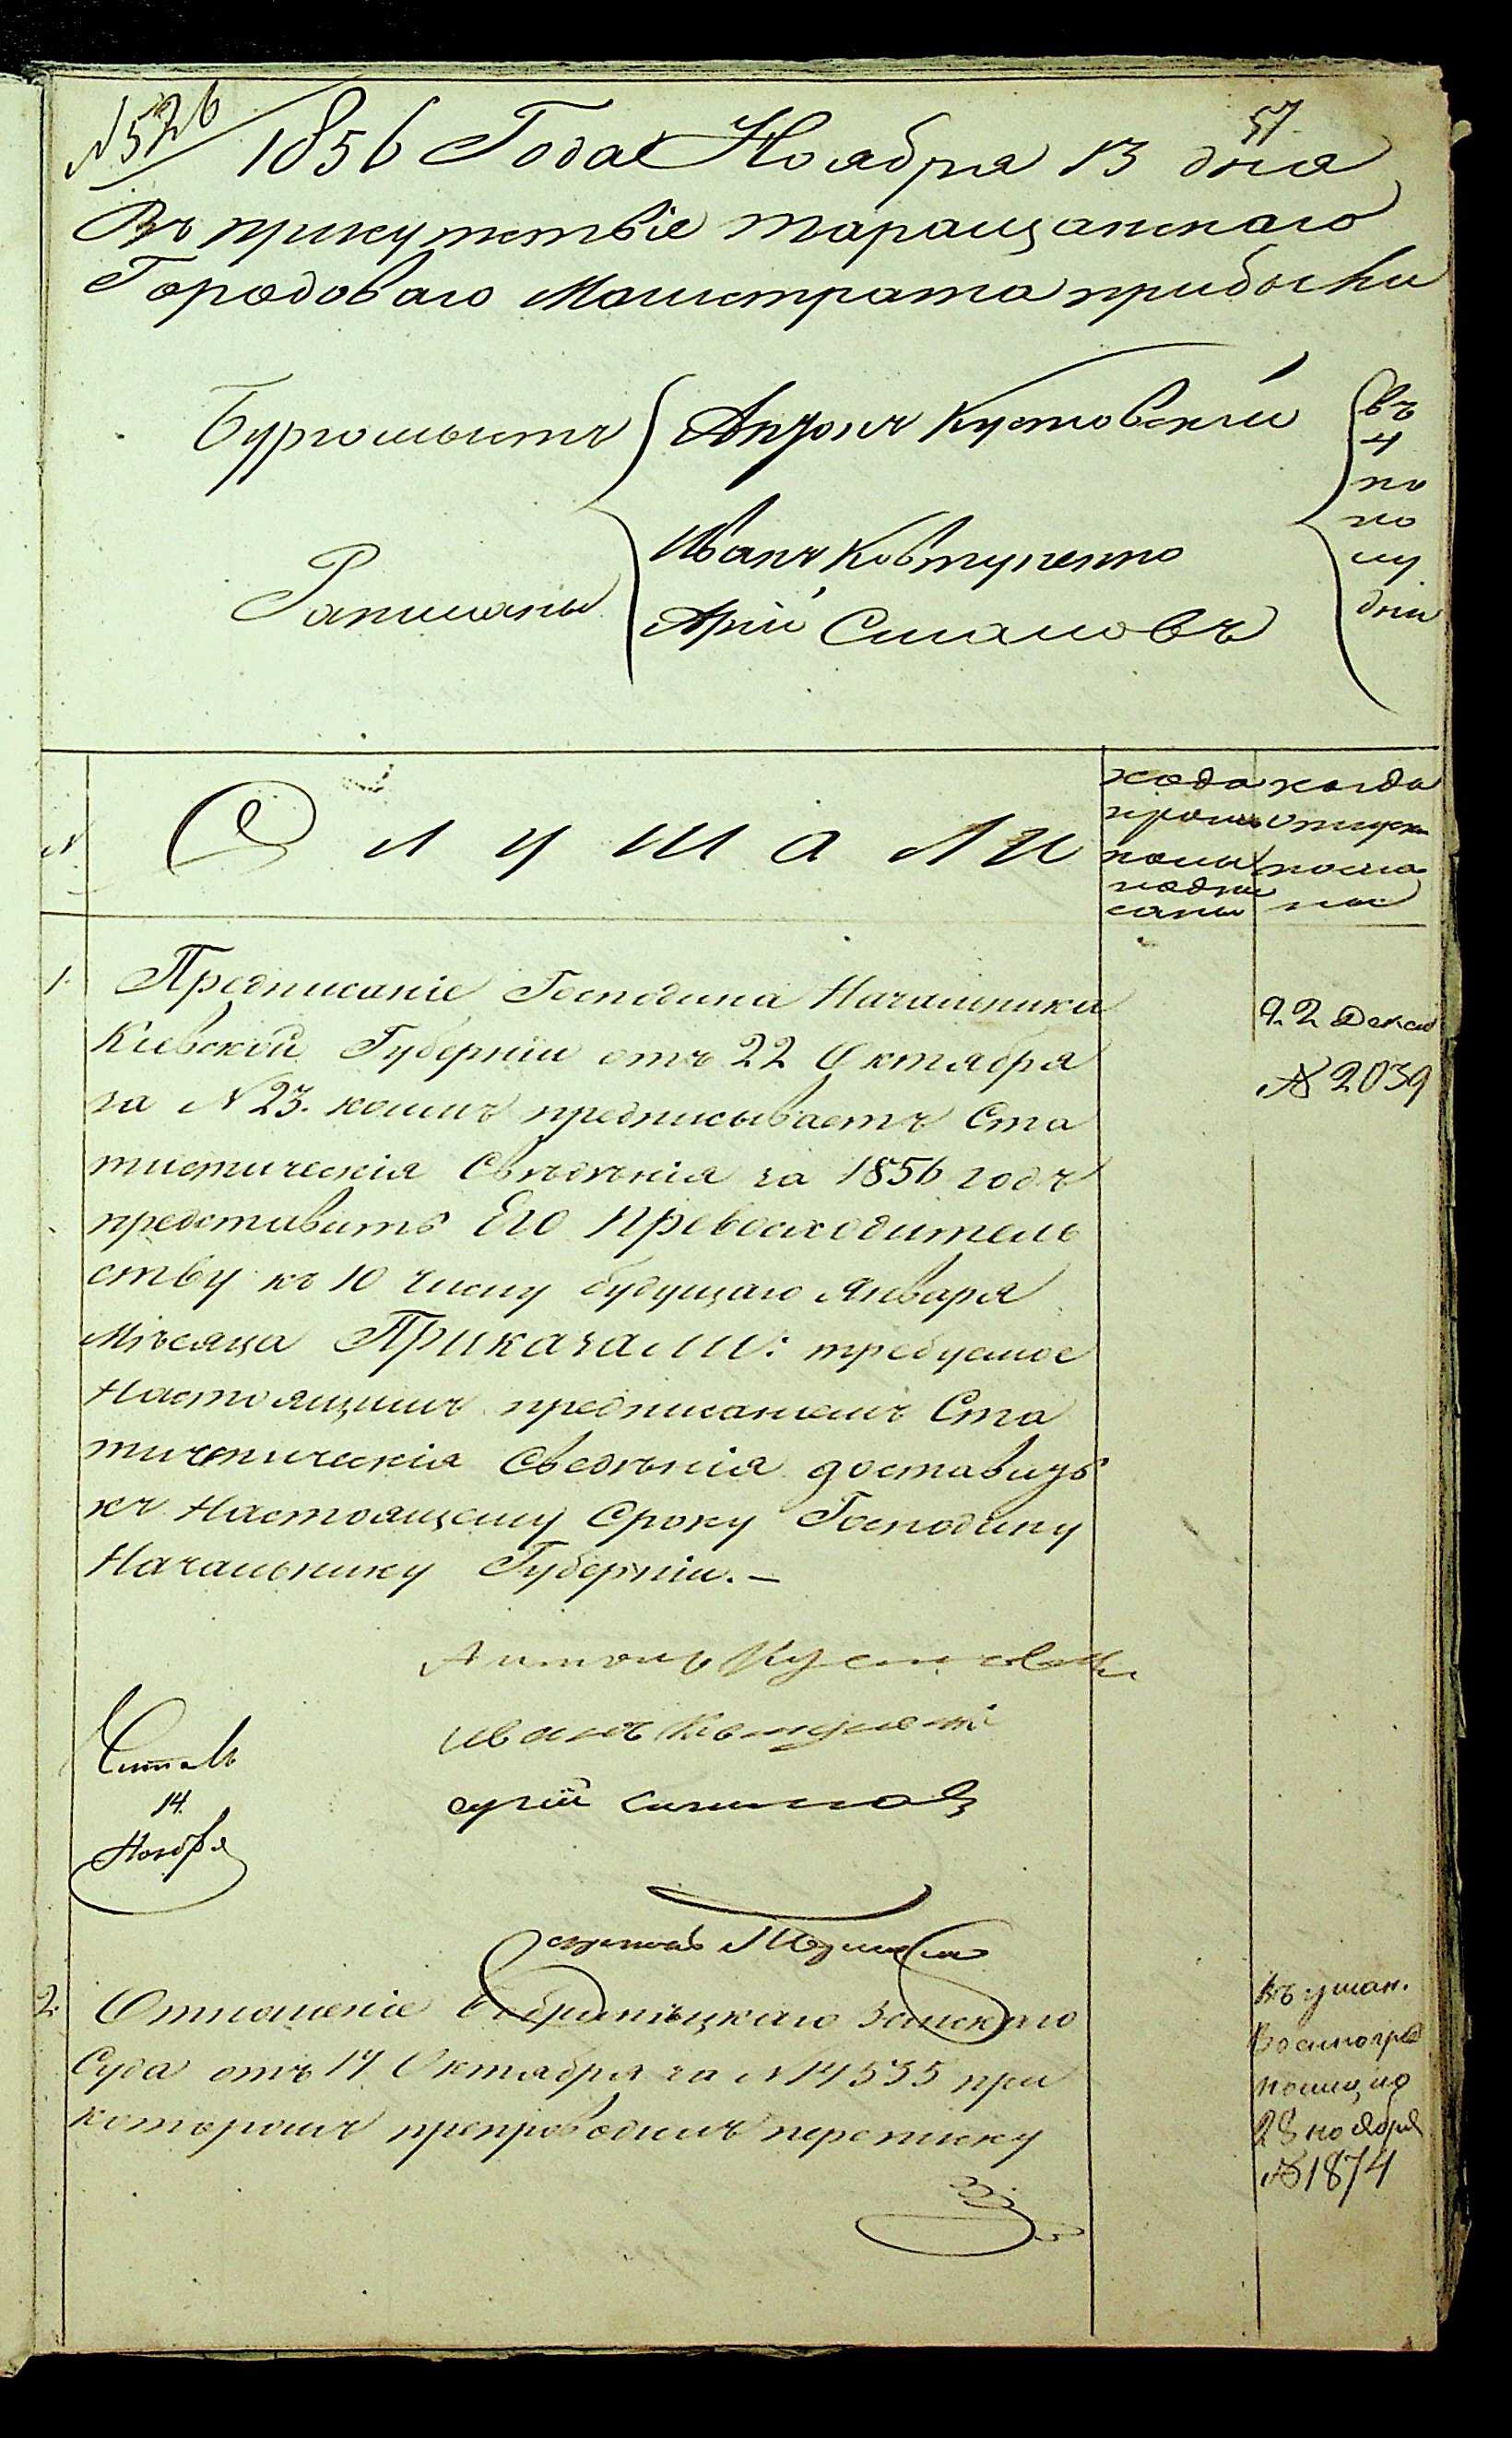 №526
57.
1856 Года Ноября 13 дня
Въ присутствіе таращанскаго
Городоваго Магистрата прибыли
Бургомистръ
Антонъ Кустовскій
въ
ч
по
по
лу
дни
Иванъ Ковтуненко
Ратманы
Арій Симановъ
№
Слушали
когда
прото
колы
подпи
саны
когда
отпра
посла
ны
1. Предписаніе Господина Начальника
Кіевской Губерніи отъ 22 Октября
за №23. коимъ предписываетъ Ста
тистическія Свѣдѣнія за 1856 годъ
представить Его Превосходитель
ству къ 10 числу будущаго Января
Мѣсяца Приказали: требуемое
Настоящимъ предписаніемъ Ста
тистическія Сведѣнія доставить
къ Настоящему Сроку Господину
Начальнику Губерніи.–
22 Декаб
№ 2039
Антонъ Кустовскі
Иванъ Ковтуненко
Читалъ
14.
Ноября
арій Симановъ
2. Отношеніе Бобринецкаго Земскаго
Суда отъ 17 Октября за №14535 при
которомъ препроводилъ переписку
Въ уман.
полицію
28 ноября
№1874